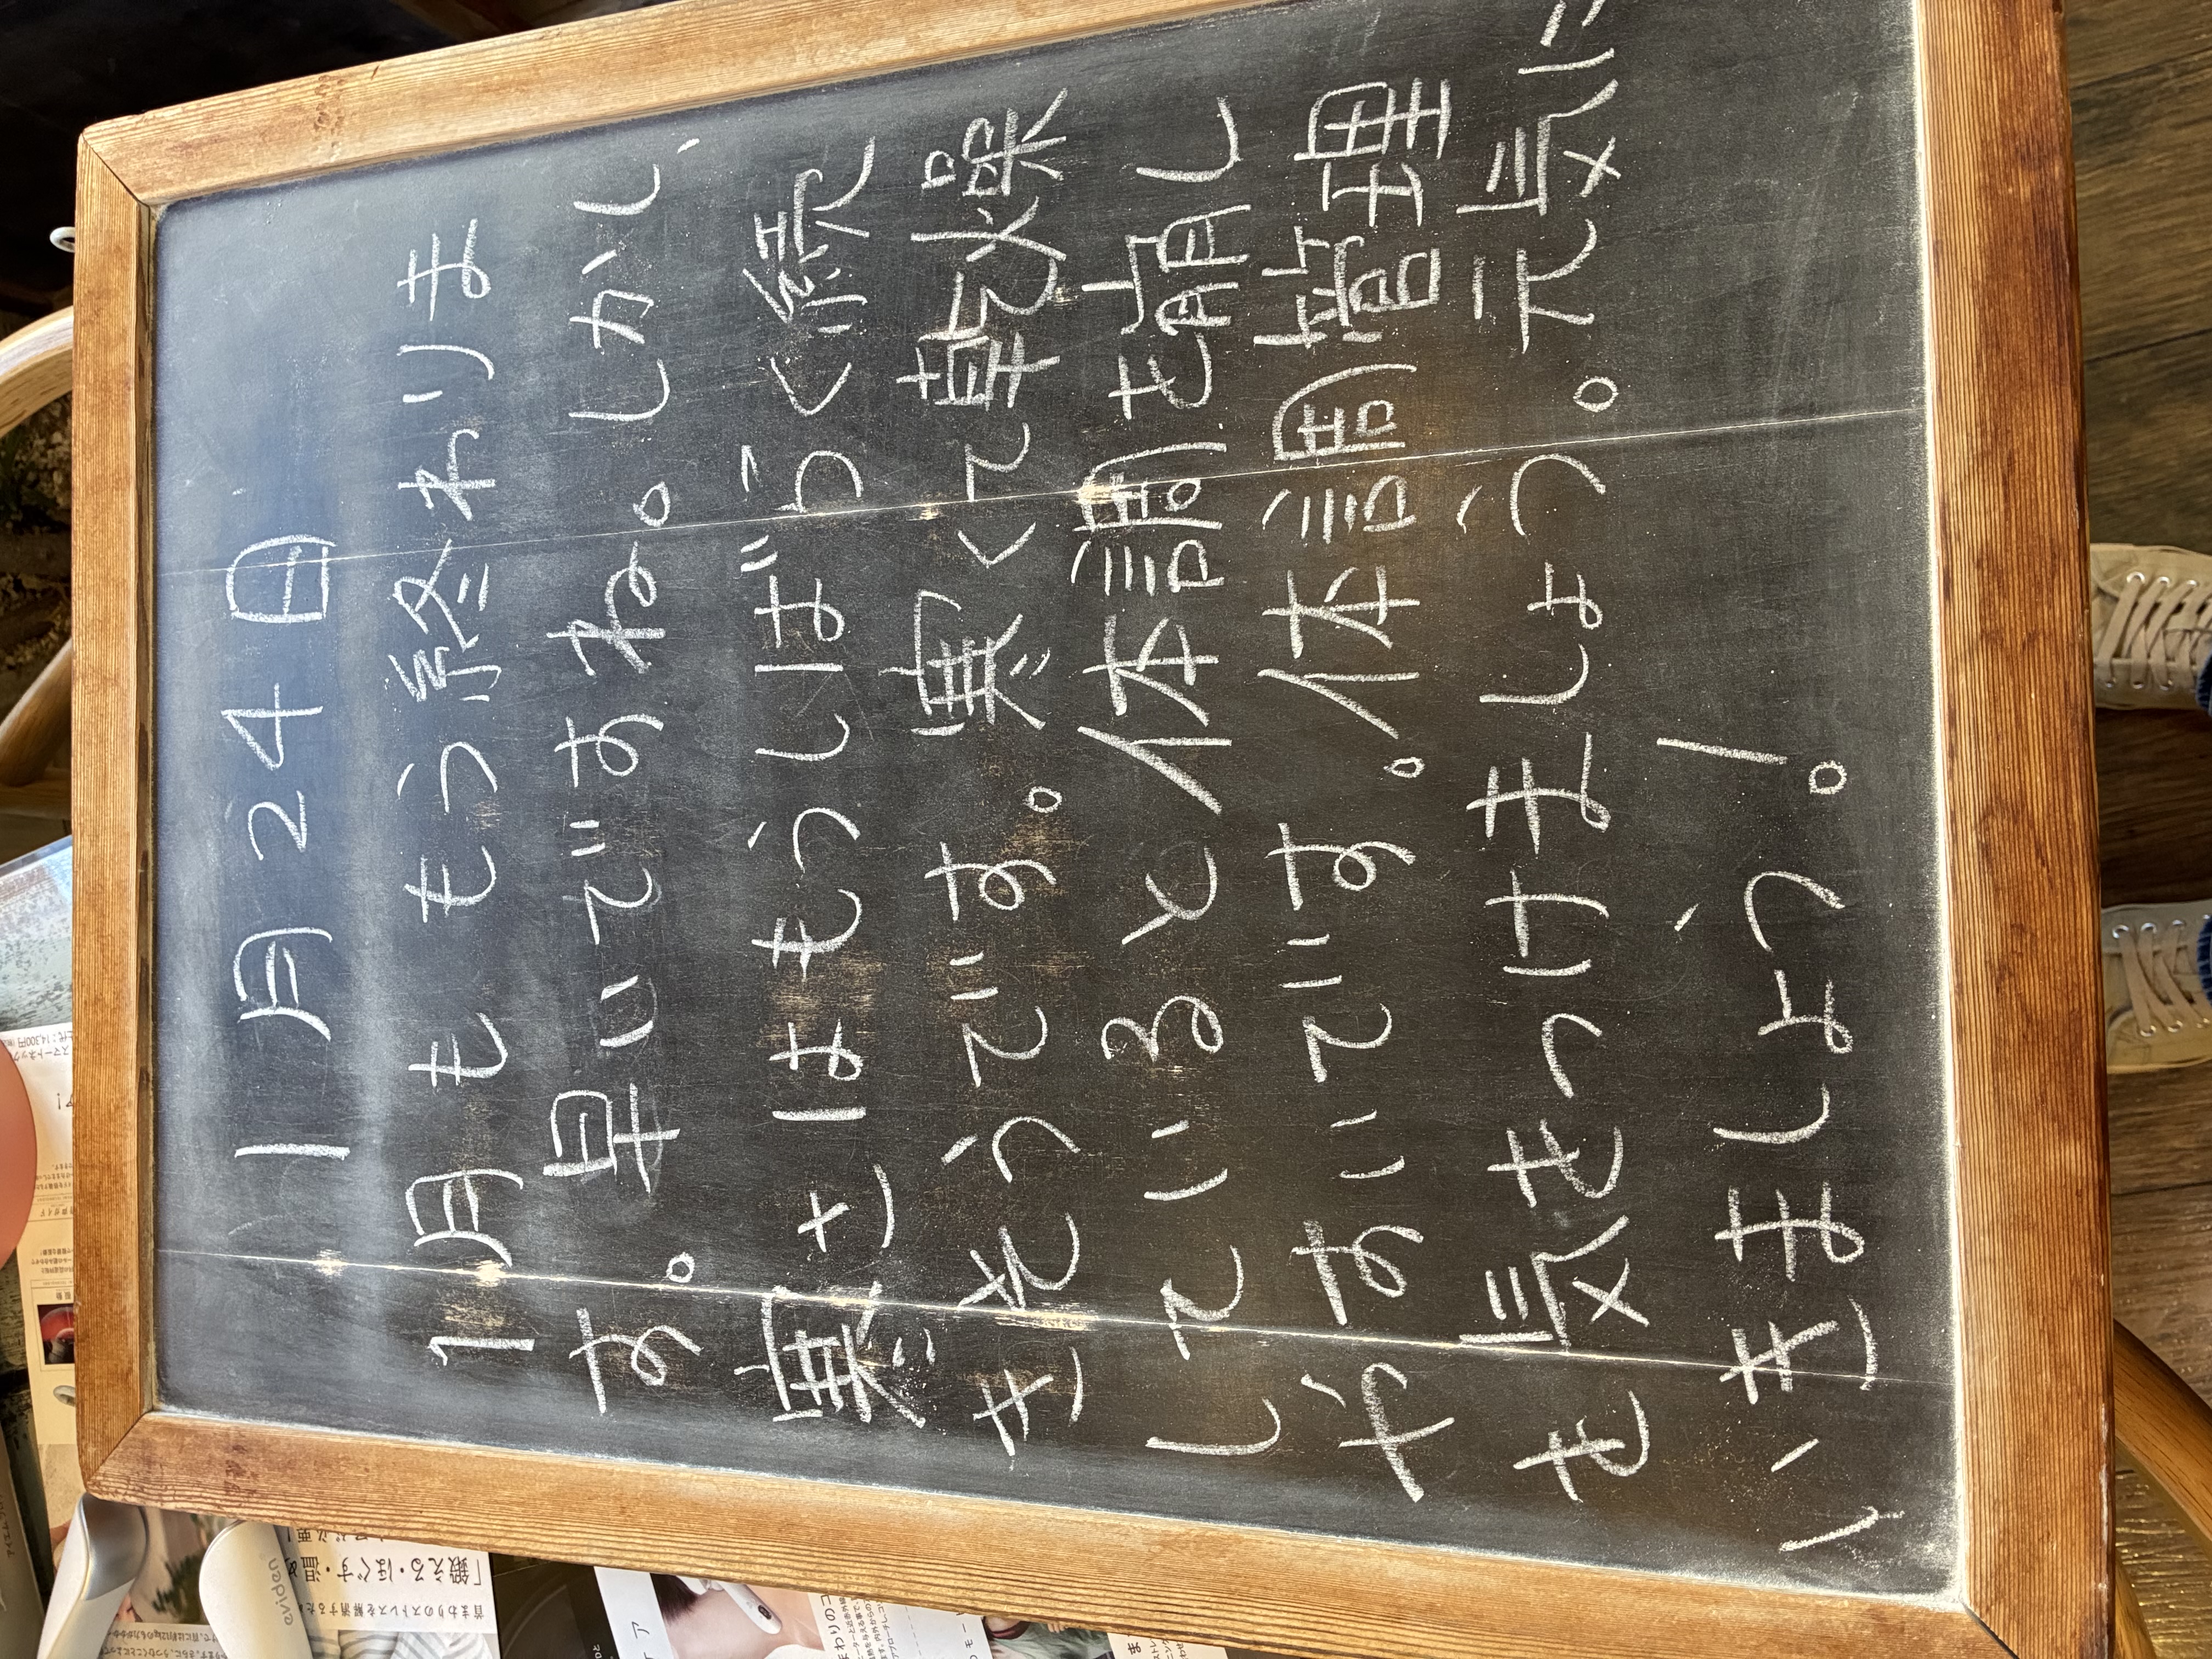 1月24日
1月ももう終わりま
す。早いですね。しかし、
寒さはもうしばらく続
きそうです。寒くて乾燥
していると体調を崩し
やすいです。体調管理
を気をつけましょう。元気に
いきましょう。
「鍛える・ほぐす・温め
eviden